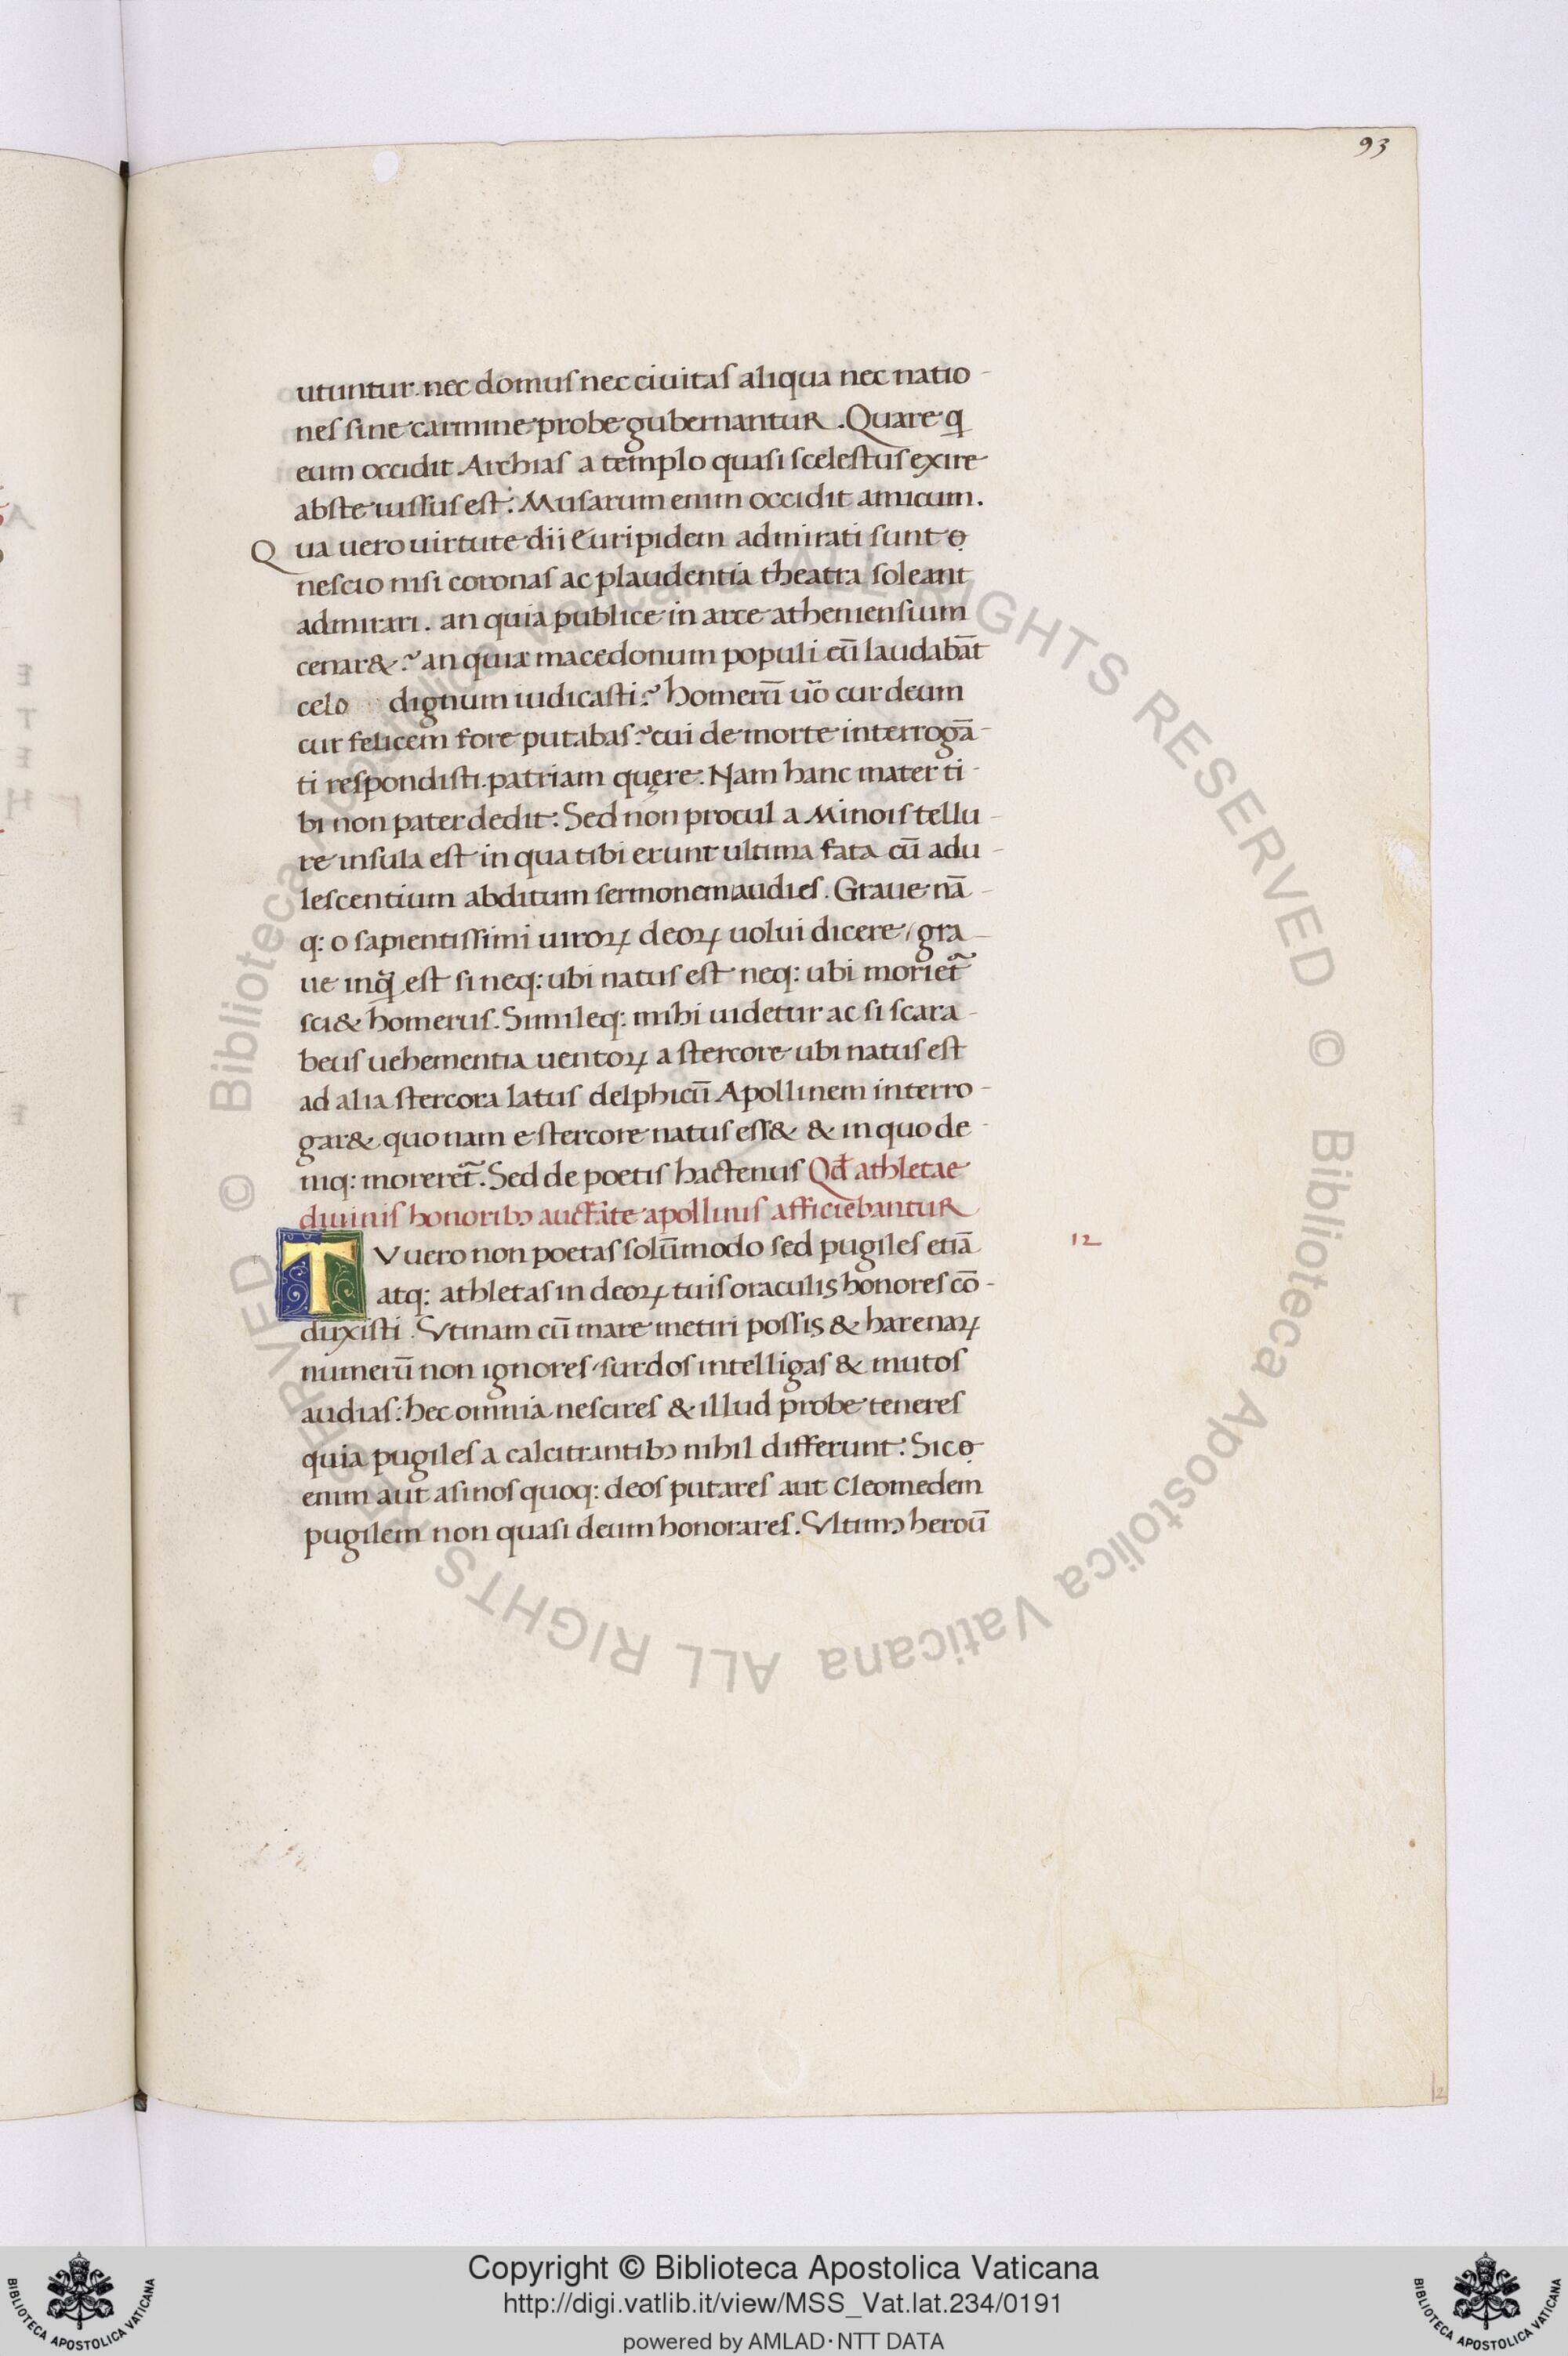 93
utuntur. nec domus nec ciuitas aliqua nec natio-
nes sine carmine probe gubernantur. Quare q̃
eum occidit Archias a templo quasi scelestus exire
abste iussus est: Musarum enim occidit amicum.
Qua uero uirtute dii Euripidem admirati sunt
nescio nisi coronas ac plaudentia theatra soleant
admirari. an quia publice in arce atheniensium
cenar&? an quia macedonum populi eū laudabāt
celo dignum iudicasti? homerū uõ cur deum
cur felicem fore putabas? cui de morte interrogā-
ti respondisti. patriam quęre: Nam hanc mater ti-
bi non pater dedit: Sed non procul a Minois tellu-
re insula est in qua tibi erunt ultima fata cū adu-
lescentium abditum sermonem audies. Graue nā-
q: o sapientissimi uiroꝝ deoꝝ uolui dicere / gra-
ue inq̃ est si neq: ubi natus est neq: ubi moriet̃
sci& homerus. Simileq: mihi uidetur ac si scara-
beus uehementia uentoꝝ a stercore ubi natus est
ad alia stercora latus delphicū Apollinem interro-
gar& quo nam e stercore natus ess& & in quo de-
niq: moreret̃. Sed de poetis hactenus Qđ athletae
diuinis honorib; auct̄ate apollinis afficiebantur
TV uero non poetas solūmodo sed pugiles etiā 12
atq: athletas in deoꝝ tuis oraculis honores cō-
duxisti. Vtinam cū mare metiri possis & harenaꝝ
numerū non ignores surdos intelligas & mutos
audias: hec omnia nescires & illud probe teneres
quia pugiles a calcitrantib; nihil differunt: Sic
enim aut asinos quoq: deos putares aut Cleomedem
pugilem non quasi deum honorares. Vltimꝰ heroū
© Biblioteca Apostolica Vaticana ALL RIGHTS RESERVED © Biblioteca Apostolica Vaticana ALL RIGHTS RESERVED
Copyright © Biblioteca Apostolica Vaticana
http://digi.vatlib.it/view/MSS_Vat.lat.234/0191
powered by AMLAD·NTT DATA
BIBLIOTECA APOSTOLICA VATICANA
BIBLIOTECA APOSTOLICA VATICANA